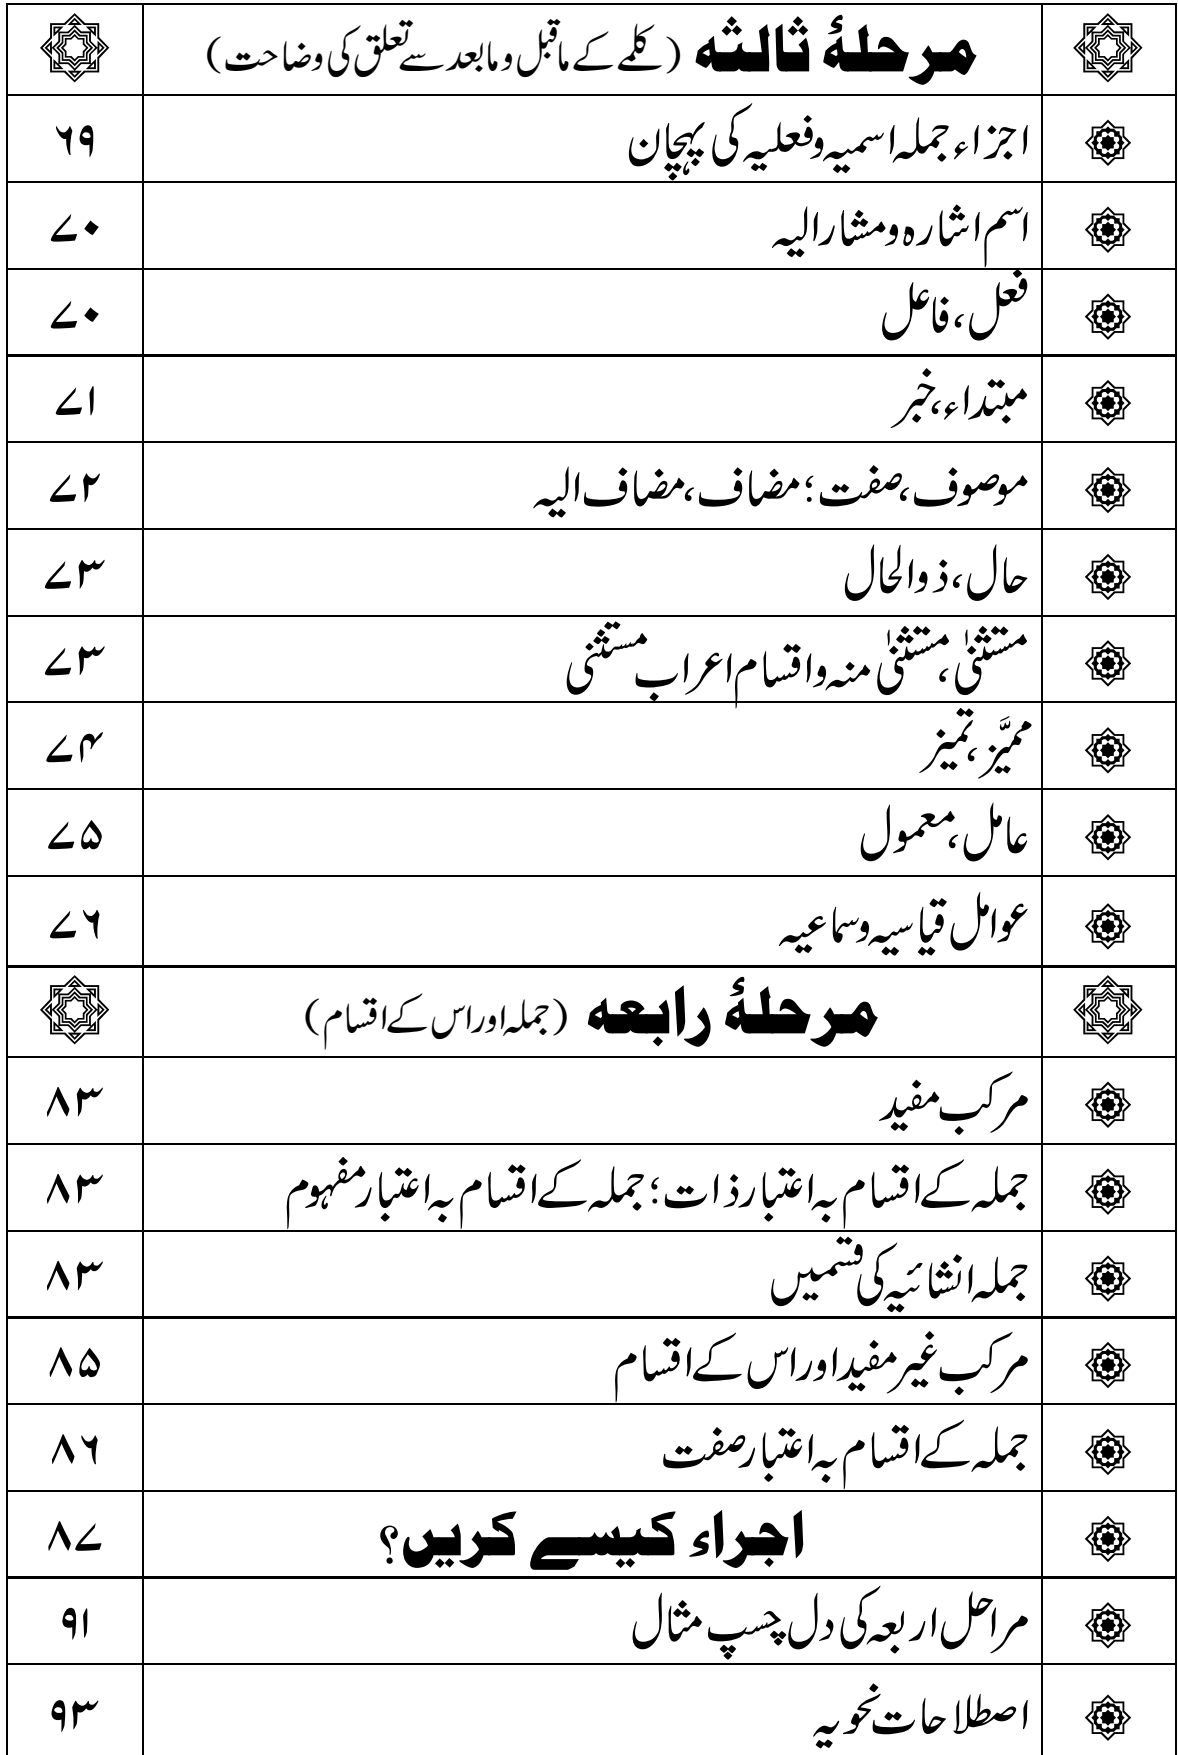 مرحلۂ ثالثه (کلمے کے ماقبل و مابعد سے تعلق کی وضاحت)
اجزاء جملہ اسمیہ وفعلیہ کی پہچان ۶۹
اسم اشارہ ومشار الیہ ۷۰
فعل، فاعل ۷۰
مبتداء، خبر ۷۱
موصوف، صفت؛ مضاف، مضاف الیہ ۷۲
حال، ذوالحال ۷۳
مستثنیٰ، مستثنیٰ منہ واقسام اعراب مستثنی ۷۳
ممیَّز، تمیز ۷۴
عامل، معمول ۷۵
عوامل قیاسیہ وسماعیہ ۷۶
مرحلۂ رابعه (جملہ اور اس کے اقسام)
مرکب مفید ۸۳
جملہ کے اقسام بہ اعتبار ذات؛ جملہ کے اقسام بہ اعتبار مفہوم ۸۳
جملہ انشائیہ کی قسمیں ۸۳
مرکب غیر مفید اور اس کے اقسام ۸۵
جملہ کے اقسام بہ اعتبار صفت ۸۶
اجراء کیسے کریں؟ ۸۷
مراحل اربعہ کی دل چسپ مثال ۹۱
اصطلاحات نحویہ ۹۳